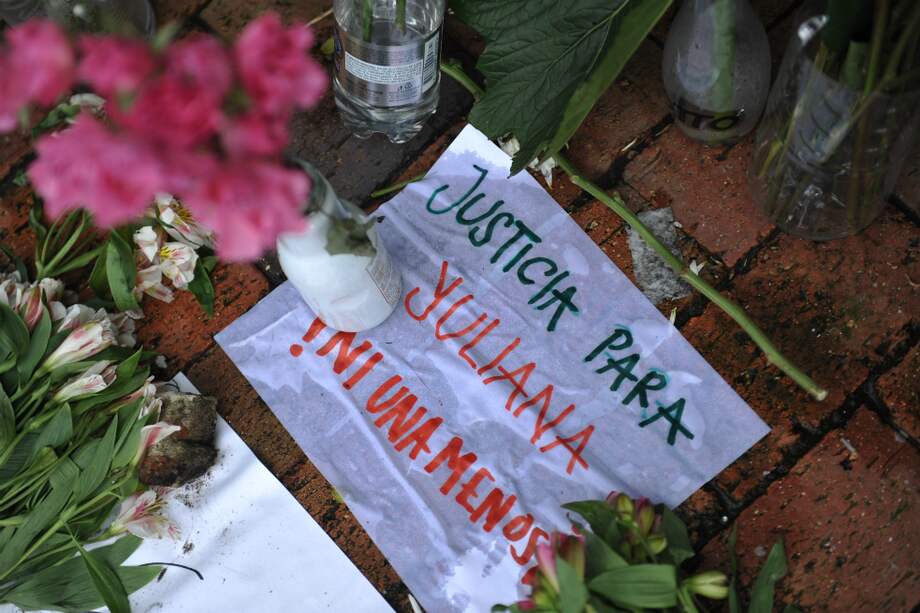 JUSTICIA PARA
YULIANA
!NI UNA MENOS!